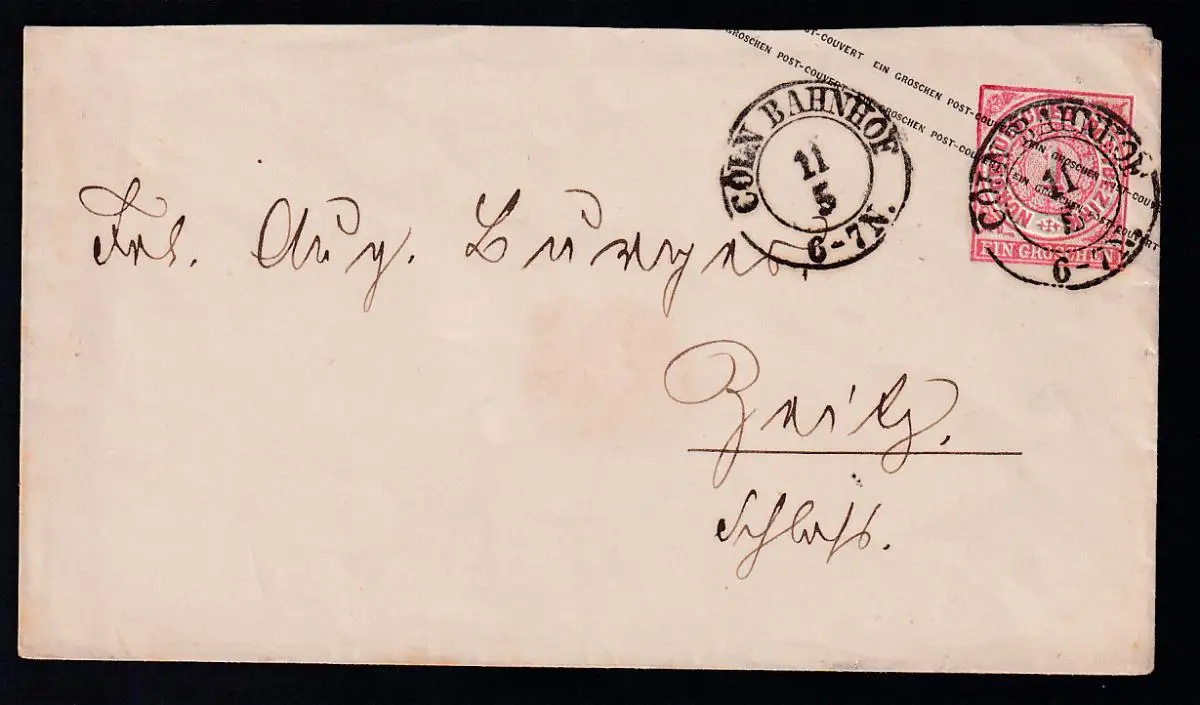 POST-COUVERT EIN GROSCHEN POST-COUVERT
GROSCHEN POST-COUVERT EIN GROSCHEN POST-COUVERT
EIN GROSCHEN POST-COUVERT
EIN GROSCHEN POST-COUVERT
CÖLN BAHNHOF
11
5
6-7N.
NORDD. POSTBEZIRK
1
EIN GROSCHEN
CÖLN BAHNHOF
11
5
6-7N.
Frl. Aug. Burger,
Zeitz.
Schloss.